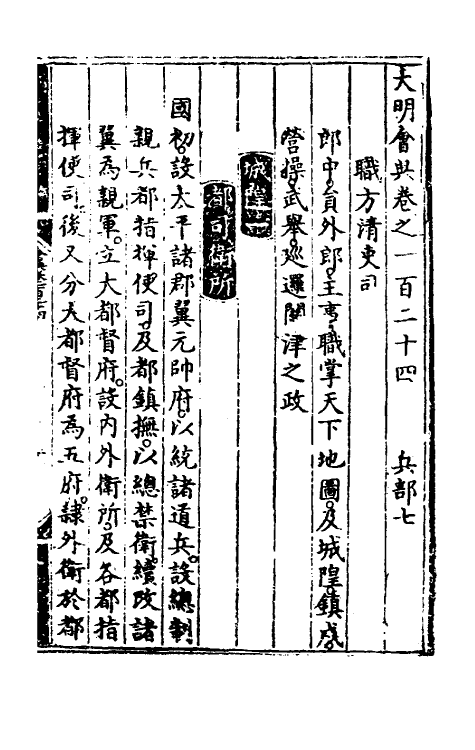 大明會典卷之一百二十四　兵部七
職方清吏司
郎中員外郎主事職掌天下地圖及城隍鎮戍
營操武舉巡邏關津之政
城隍一
都司衛所
國初設太平諸郡翼元帥府以統諸道兵設總制
親兵都指揮使司及都鎮撫以總禁衛續改諸
翼為親軍立大都督府設內外衛所及各都指
揮使司後又分大都督府為五府隸外衛於都